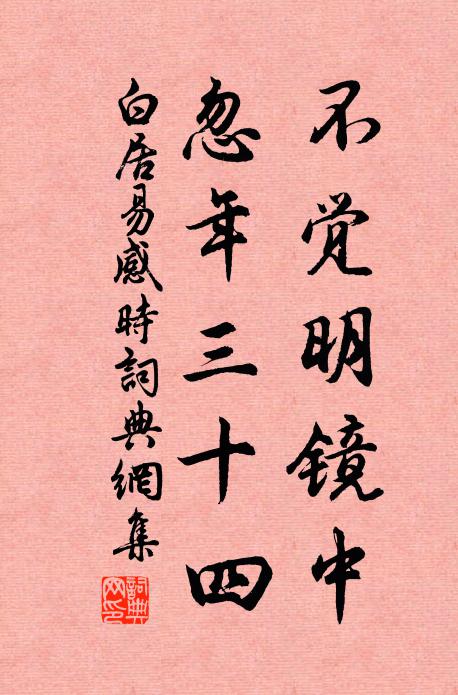 不觉明镜中
忽年三十四
白居易感時詞典網集
詞典网印